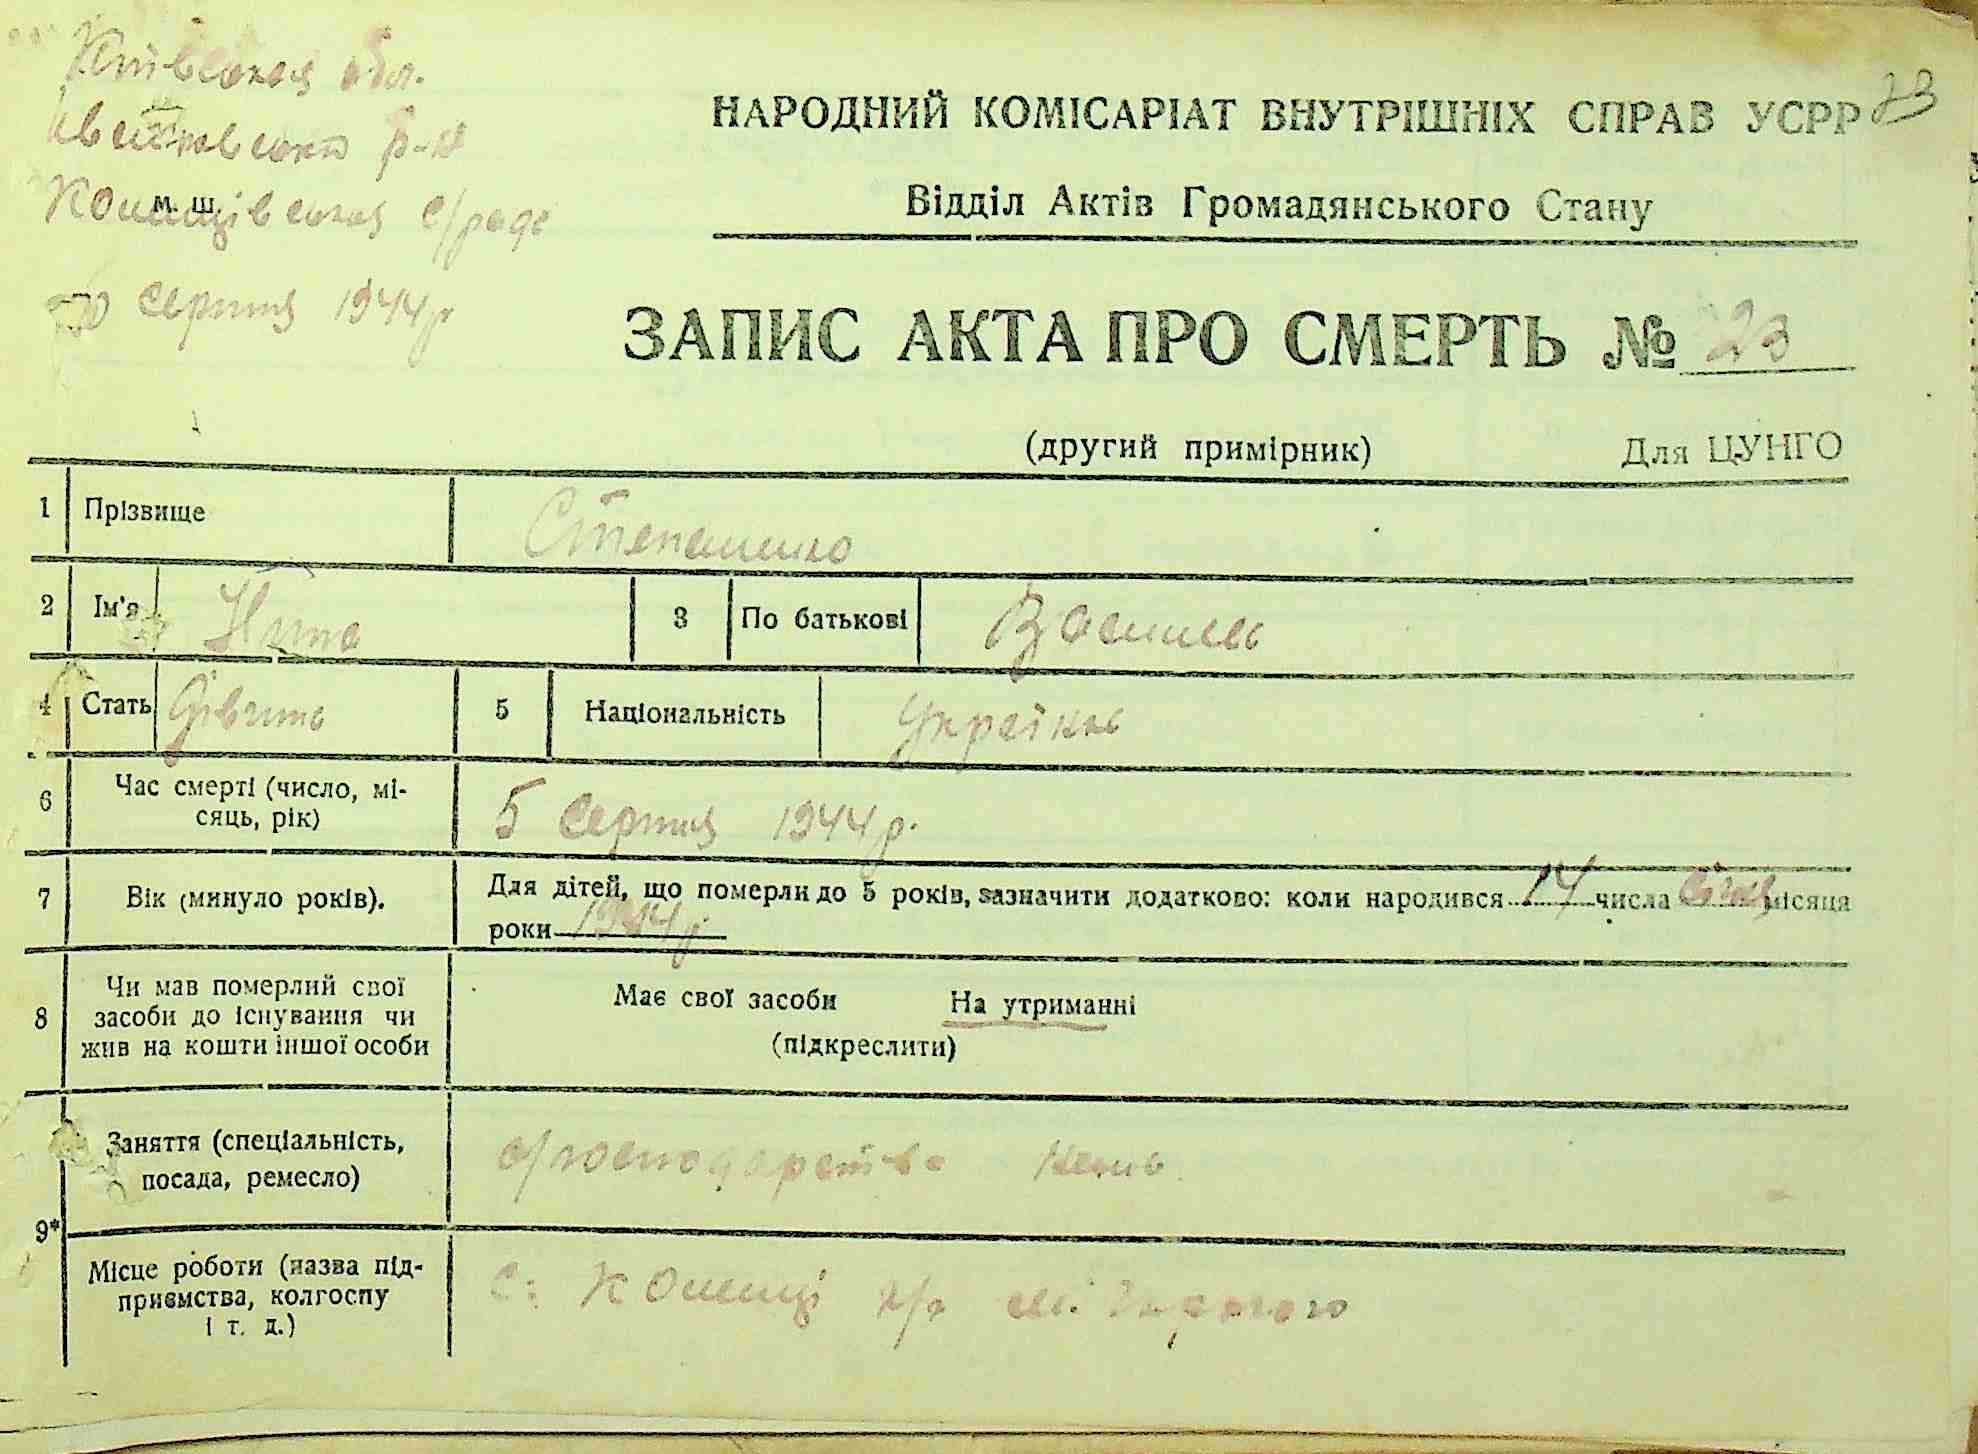 Київська обл.
р-н
с/рада
серпня 1944 р
м. ш.
НАРОДНИЙ КОМІСАРІАТ ВНУТРІШНІХ СПРАВ УСРР 23
Відділ Актів Громадянського Стану
ЗАПИС АКТА ПРО СМЕРТЬ № 23
(другий примірник) Для ЦУНГО
1 Прізвище Степаненко
2 Ім'я Ніна 3 По батькові Василів
4 Стать Дівчина 5 Національність Українка
6 Час смерті (число, мі-
сяць, рік) 5 Серпня 1944 р.
7 Вік (минуло років). Для дітей, що померли до 5 років, зазначити додатково: коли народився 14 числа січня місяця
роки 1944 р.
8 Чи мав померлий свої
засоби до існування чи
жив на кошти іншої особи
Має свої засоби На утриманні
(підкреслити)
9*
Заняття (спеціальність,
посада, ремесло) с/господарство
Місце роботи (назва під-
приємства, колгоспу
і т. д.) с.